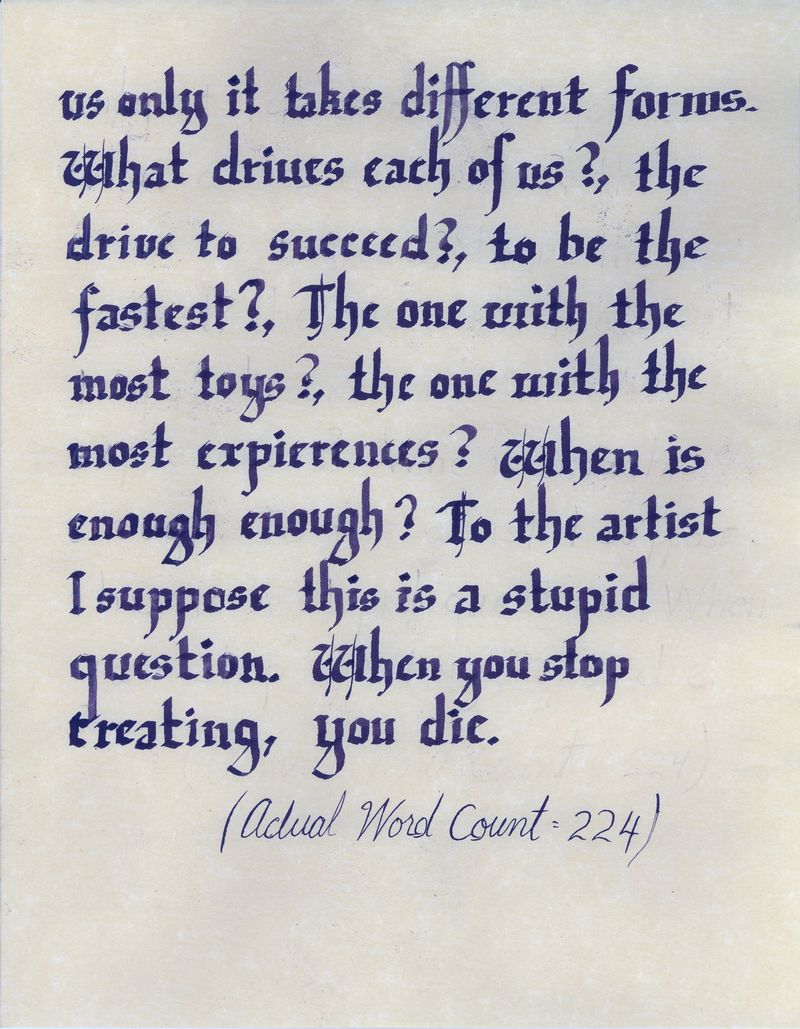 us only it takes different forms.
What drives each of us?, the
drive to succeed?, to be the
fastest?, The one with the
most toys?, the one with the
most expierences? When is
enough enough? To the artist
I suppose this is a stupid
question. When you stop
creating, you die.
(Actual Word Count = 224)